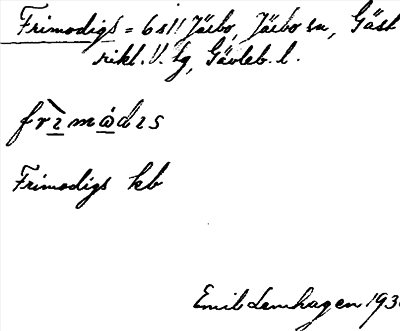 Frimodigs = 6 s11 Järbo, Järbo sn, Gäst
rikl. V. tg, Gävleb. l.
frìmȧdıs
Frimodigs kb
Emil Lemhagen 193